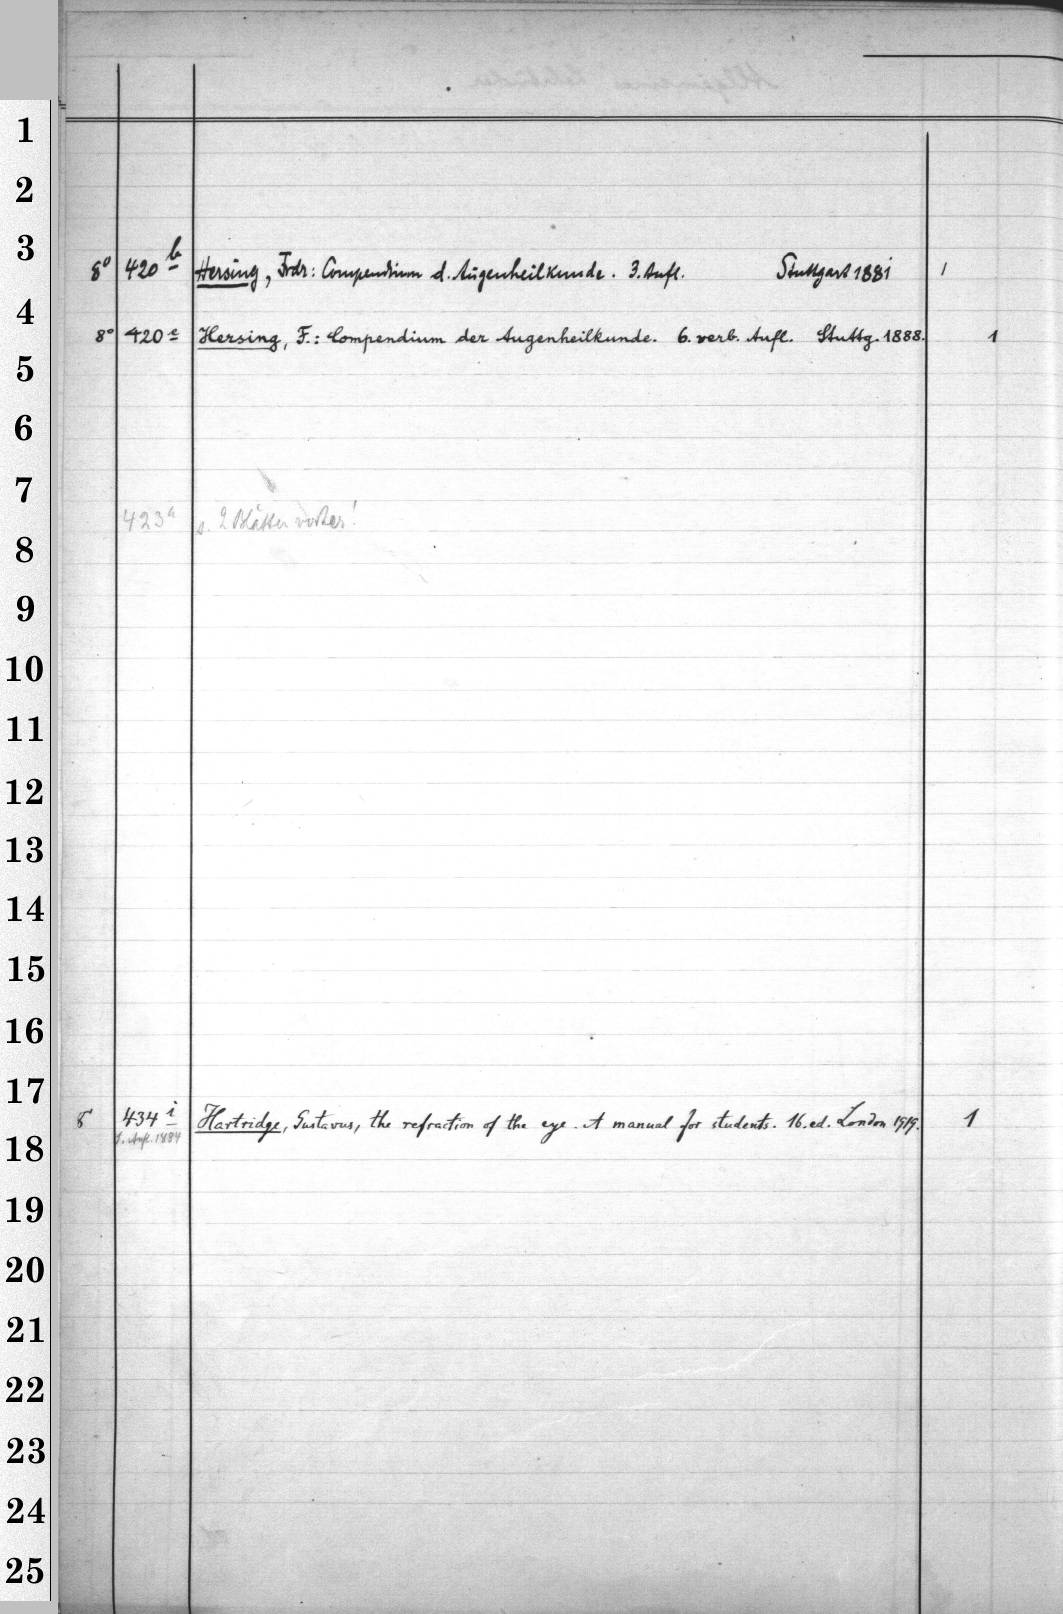 1
2
3
8° 420 b Hersing, Frdr: Compendium d. Augenheilkunde. 3. Aufl. Stuttgart 1881 1
4
8° 420 c Hersing, F.: Compendium der Augenheilkunde. 6. verb. Aufl. Stuttg. 1888. 1
5
6
7
423 a s. 2 Blätter vorher!
8
9
10
11
12
13
14
15
16
17
8° 434 i Hartridge, Gustavus, the refraction of the eye. A manual for students. 16. ed. London 1919. 1
1. Aufl. 1884
18
19
20
21
22
23
24
25